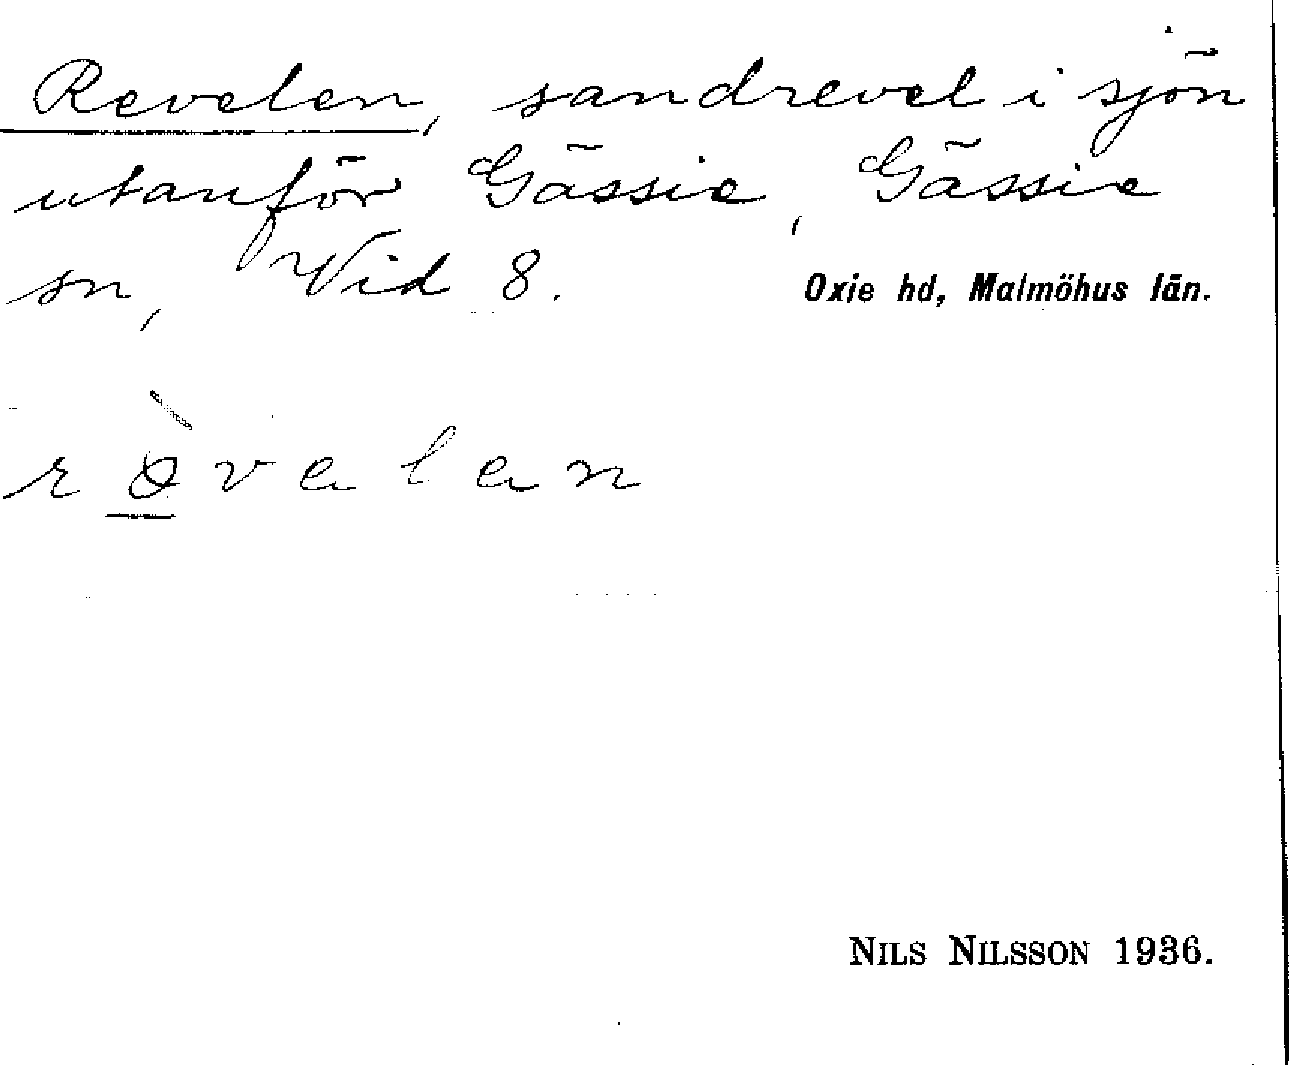 Revelen, sandrevel i sjön
utanför Gässie, Gässie
sn, Vid 8. Oxie hd, Malmöhus län.
rø̀velen
NILS NILSSON 1936.